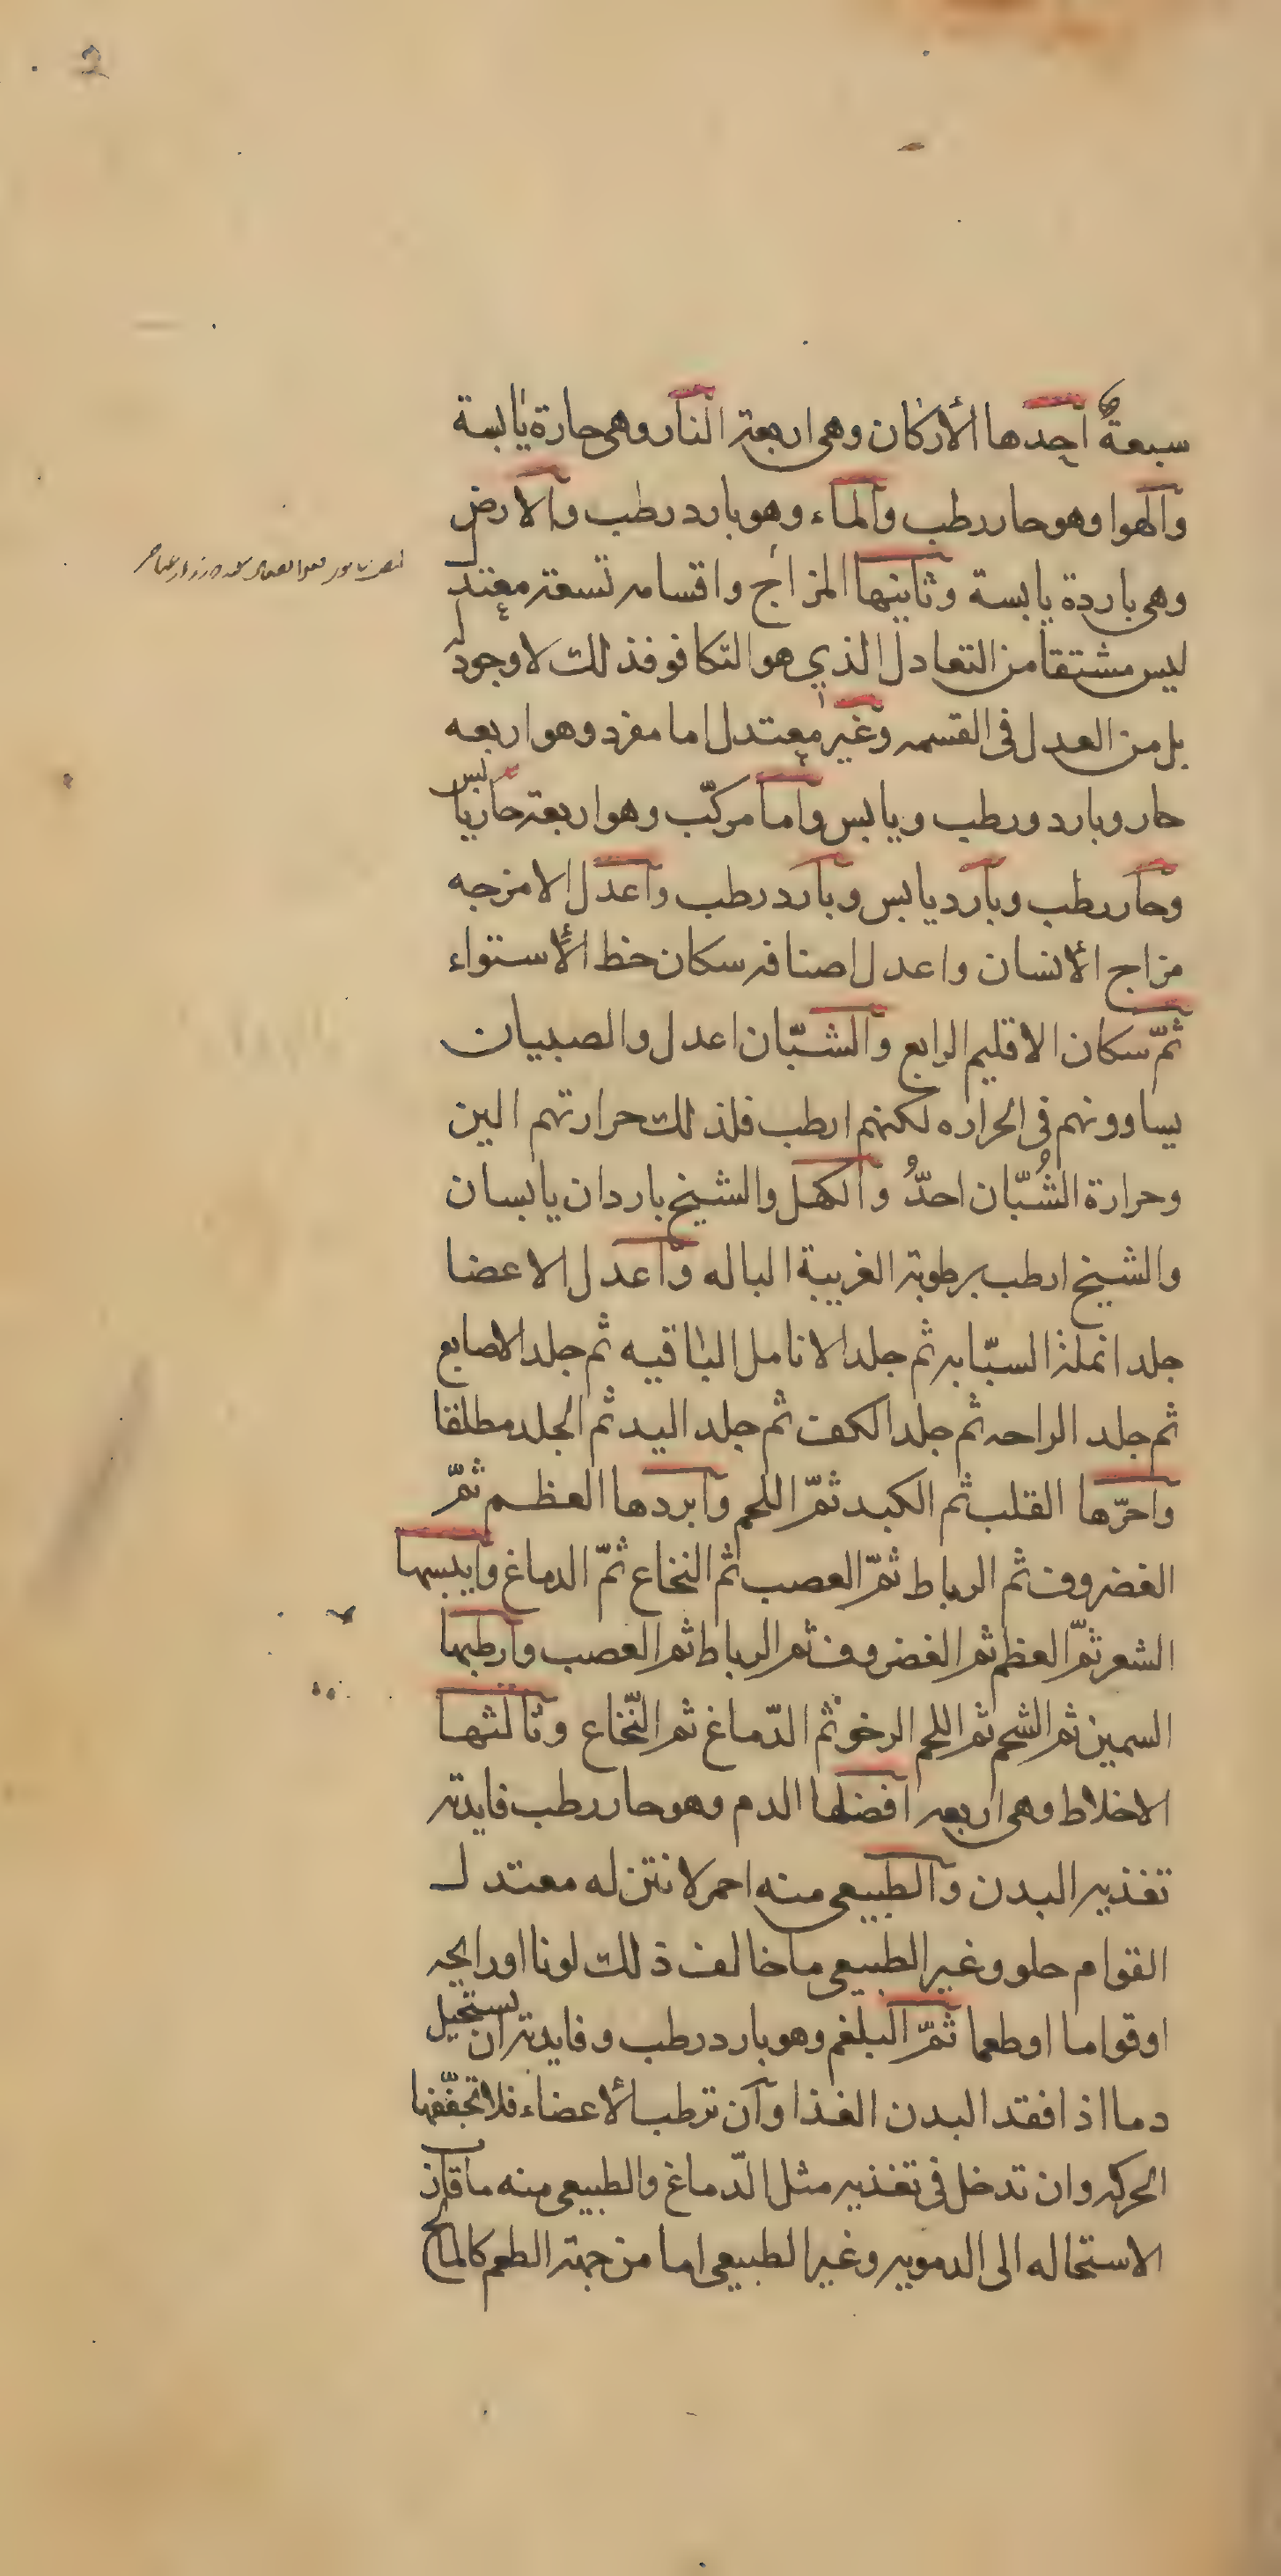 سبعةٌ احدها الأركان وهى اربعة النار وهى حارة يابسة
والهوا وهو حار رطب والماء وهو بارد رطب والارض
وهى باردة يابسة وثانيها المزاج واقسامه تسعة معتدل
ليس مشتقا من التعادل الذي هو التكافو فذلك لا وجود له
بل من العدل فى القسمه وغير معتدل اما مفرد وهو اربعه
حار وبارد ورطب ويابس واما مركّب وهو اربعة حار يابس
وحار رطب وبارد يابس وبارد رطب واعدل الامزجه
مزاج الأنسان واعدل اصنافه سكان خط الأستواء
ثمّ سكان الاقليم الرابع والشبّان اعدل والصبيان
يساوونهم فى الحراره لكنهم ارطب فلذلك حرارتهم الين
وحرارة الشُبّان احدُّ والكهل والشيخ باردان يابسان
والشيخ ارطب برطوبة الغريبة الباله واعدل الاعضا
جلد انملة السبّابه ثم جلد الانامل الباقيه ثم جلد الاصابع
ثم جلد الراحه ثم جلد الكف ثم جلد اليد ثم الجلد مطلقا
واحرّها القلب ثم الكبد ثمّ اللحم وابردها العظم ثمّ
الغضروف ثم الرباط ثمّ العصب ثم النخاع ثمّ الدماغ وايبسها
الشعر ثمّ العظم ثم الغضروف ثم الرباط ثم العصب وارطبها
السمين ثم الشحم ثم اللحم الرخو ثم الدّماغ ثم النّخاع وثالثها
الاخلاط وهى اربعه افضلها الدم وهو حار رطب فايدته
تغذيه البدن والطبيعى منه احمر لا نتن له معتدل
القوام حلو وغير الطبيعى ما خالف ذلك لونا او رايحه
او قواما او طعما ثمّ البلغم وهو بارد رطب وفايدته ان يستحيل
دما اذا فقد البدن الغذا وان ترطب الأعضاء فلا تجفّفها
الحركه وان تدخل فى تغذيه مثل الدّماغ والطبيعى منه ما قارب
الاستحاله الى الدمويه وغير الطبيعى اما من جهة الطعم كالمالح